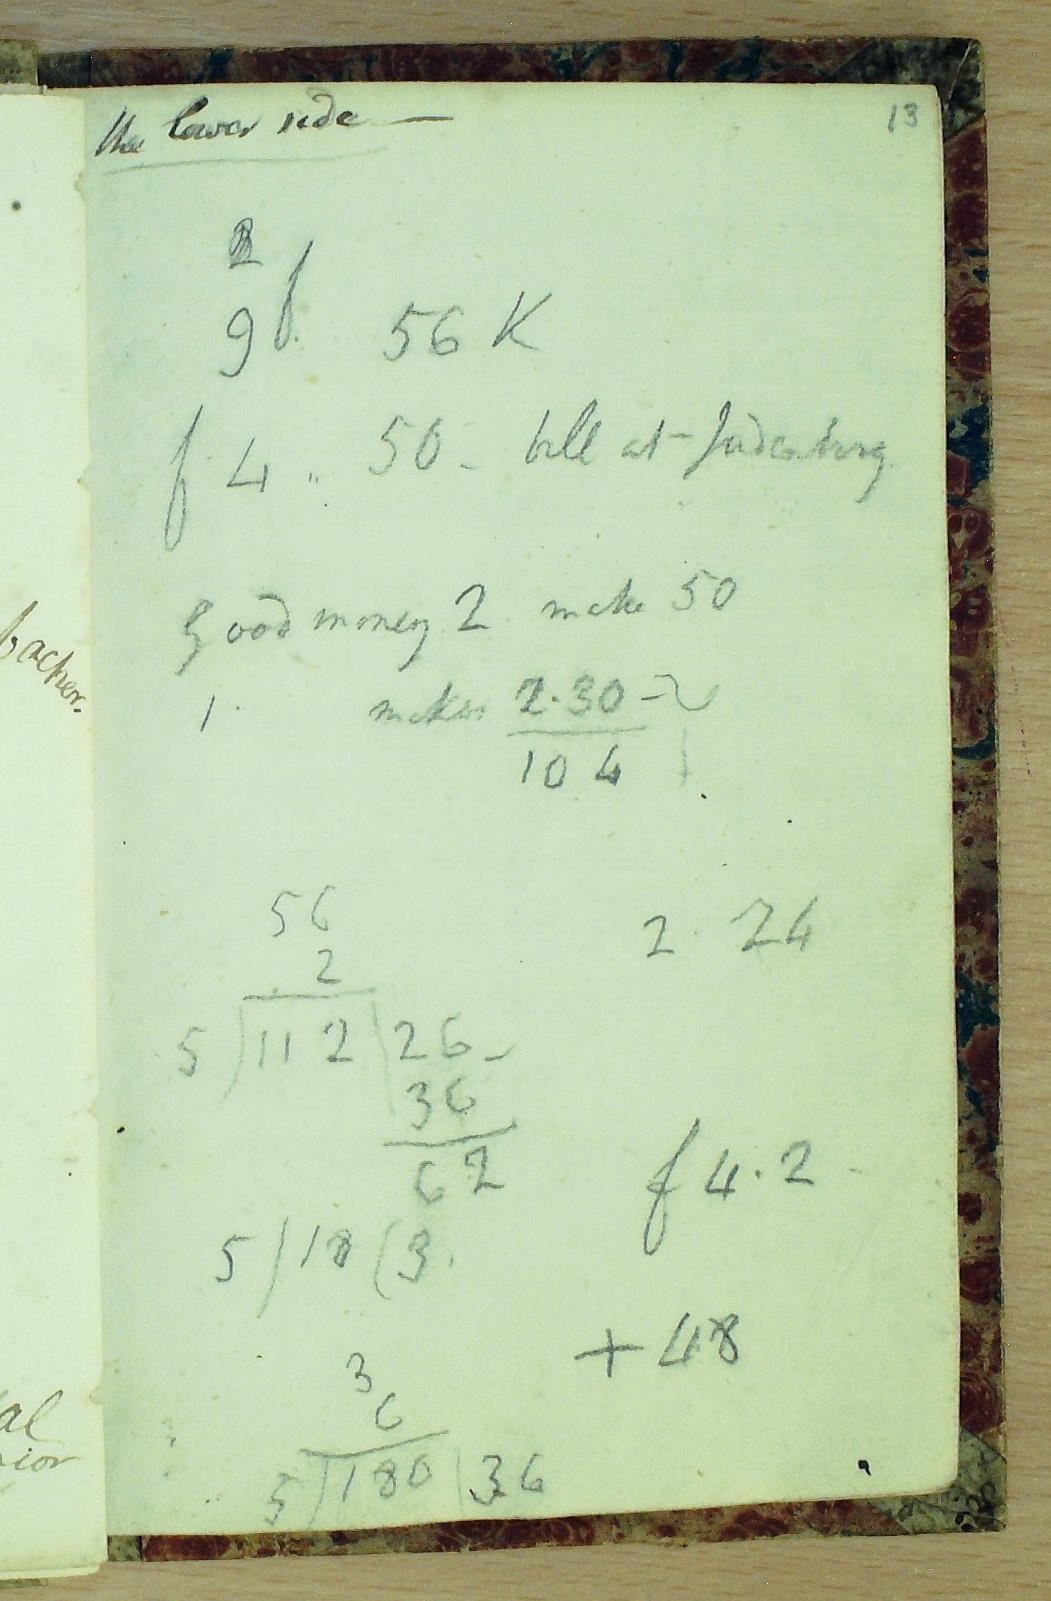 13
the lower side —
2
9 f. 56 K
f 4 " 50 - bill at Judenburg
Good money 2 make 50
1. makes 2.30 -
10 4
56
2
2. 24
5 ) 112 | 26 -
36
62
f 4 . 2 -
5 / 18 ( 3.
+ 48
3
6
5 ) 180 | 36
bacher.
al
nior